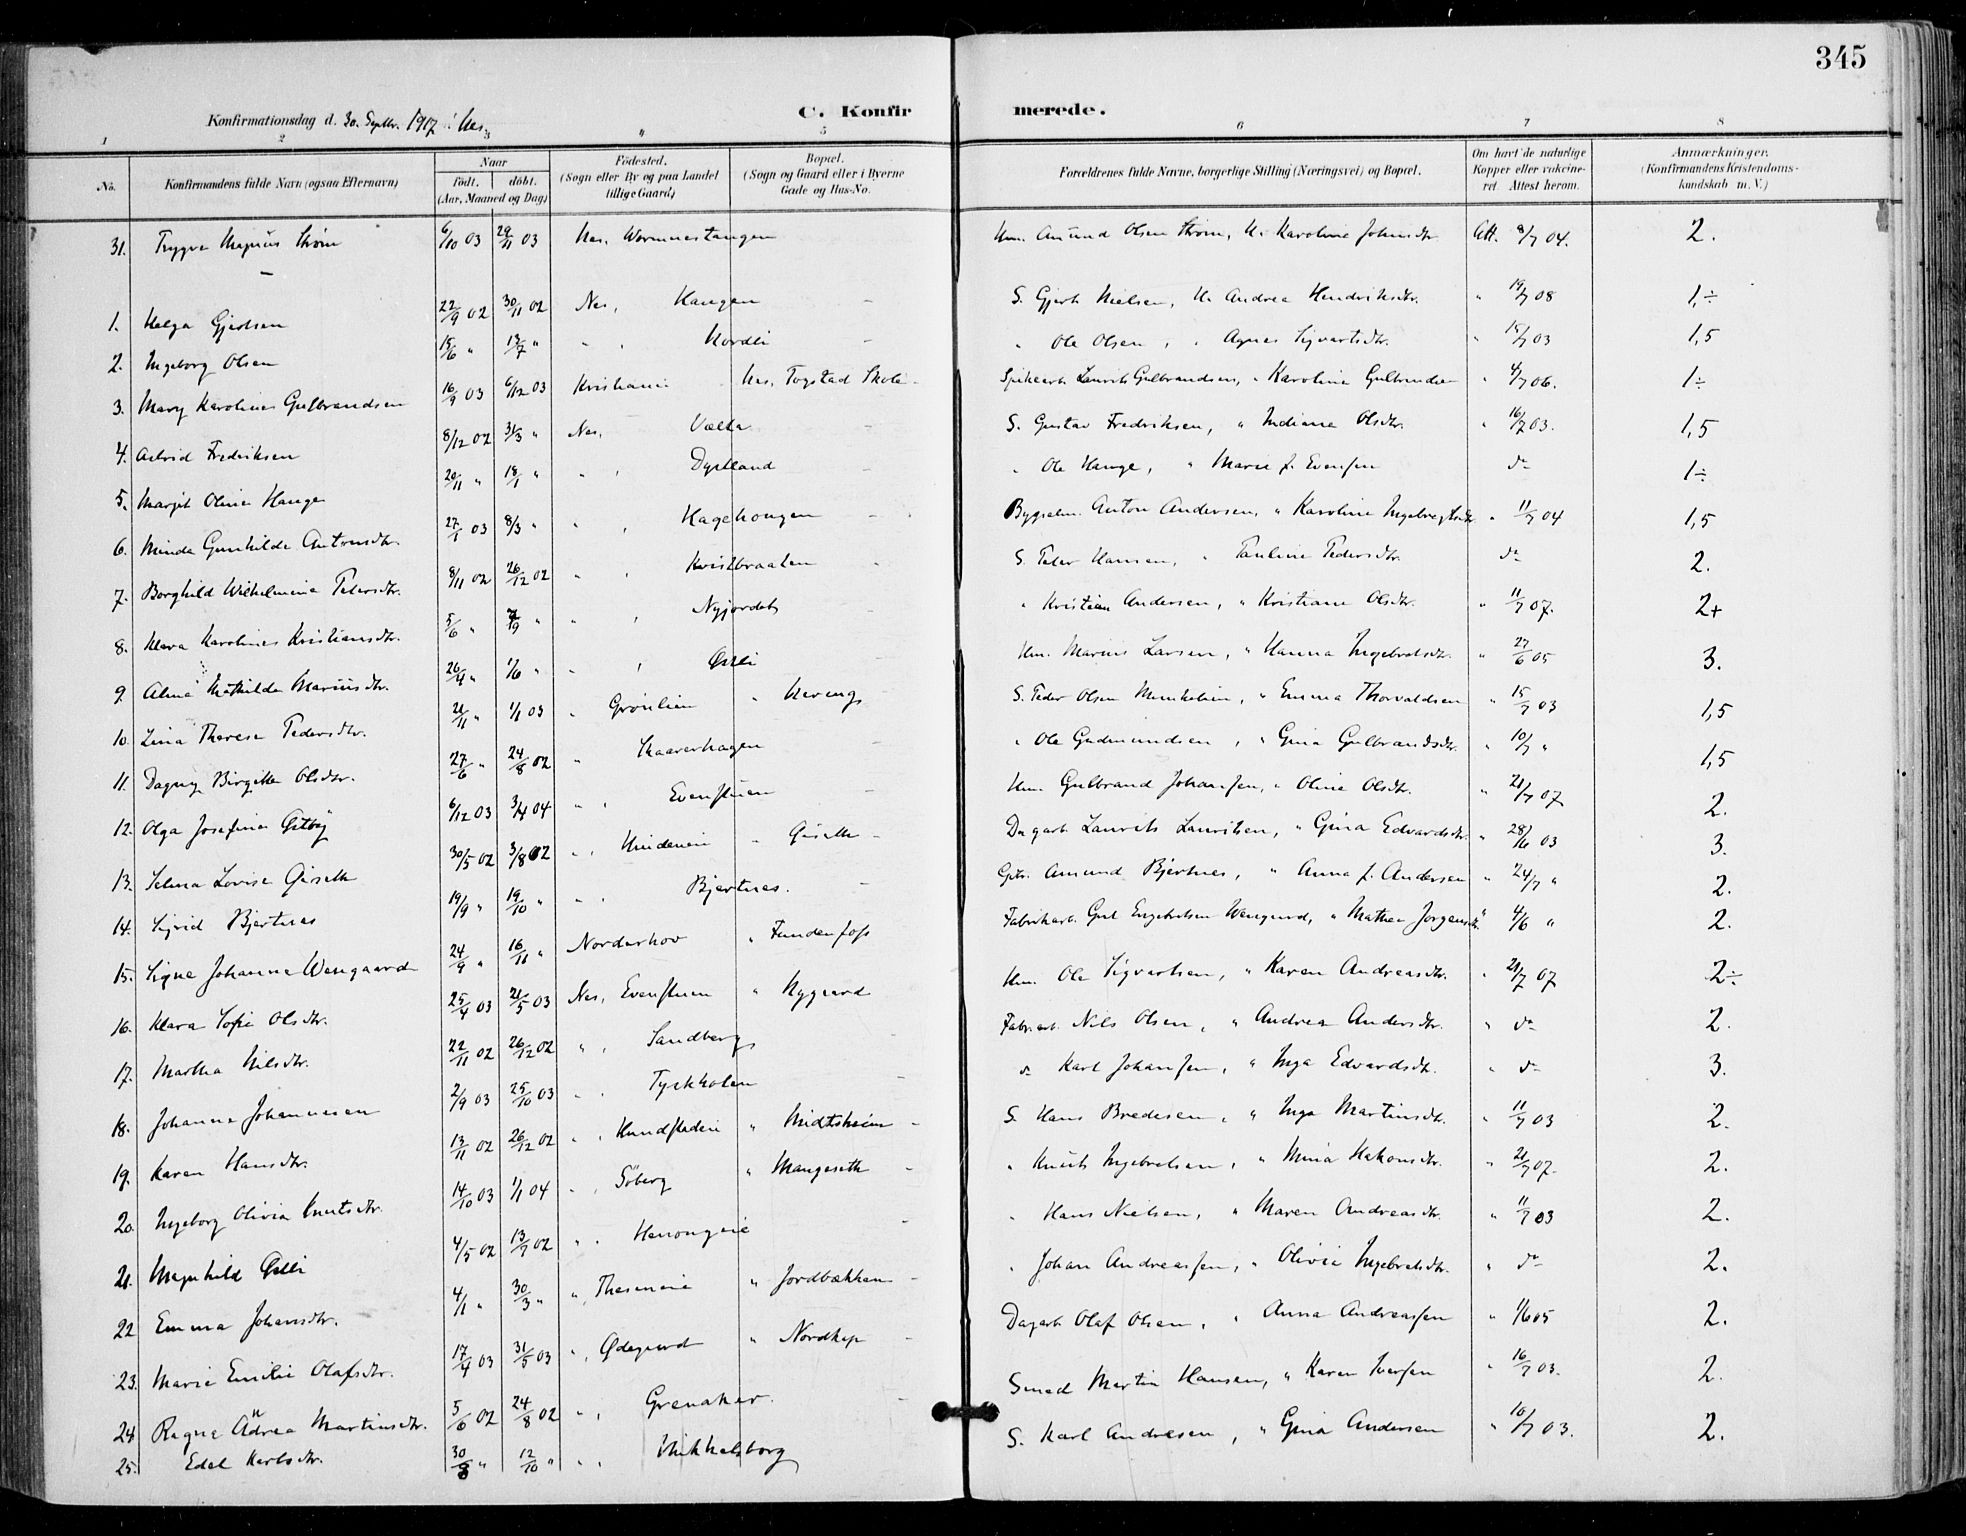 345
C. Konfirmerede.
Konfirmationsdag d. 30. Septbr. 1917 i Nes.
1 2 3 4 5 6 7 8
No. Konfirmandens fulde Navn (ogsaa Efternavn) Naar født. døbt. (Aar, Maaned og Dag) Fødested. (Sogn eller By og paa Landet tillige Gaard) Bopæl. (Sogn og Gaard eller i Byerne Gade og Hus-No. Forældrenes fulde Navne, borgerlige Stilling (Næringsvei) og Bopæl. Om havt de naturlige Kopper eller vaccineret. Attest herom. Anmærkninger. (Konfirmandens Kristendomskundskab m. V.)
31. Trygve Magnus Strøm 6/10 03 29/11 03 Nes, Wormnestangen Um. Amund Olsen Strøm, U. Karoline Johnsdtr. Att. 8/7 04. 2.
1. Helga Gjertsen 22/9 02 30/11 02 Nes, Haugen S. Gjert Nielsen, U. Andrea Hendriksdtr. " 19/7 08 1,÷
2. Ingeborg Olsen 15/6 " 13/7 " " , Nordli " Ole Olsen, " Agnes Sigvartsdtr. " 15/7 03 1,5
3. Mary Karoline Gulbrandsen 16/9 03 6/12 03 Kristiania Nes, Togstad Skole Laurits Gulbrandsen, " Karoline Gulbrandsen " 4/7 06. 1÷
4. Astrid Fredriksen 8/12 02 31/3 " Nes, Vælta S. Gustav Fredriksen, " Indiane Olsdtr. " 16/7 03. 1,5
5. Margit Olivia Hauge 20/11 " 18/1 " " , Dystland " Ole Hauge, " Marie f. Evensen do 1÷
6. Minda Gunhilda Antonsdtr. 27/1 03 8/3 " " , Hagehougen Anton Andersen, " Karoline Ingebregtsdtr. " 11/7 04 1,5
7. Borghild Wilhelmina Pedersdtr. 8/11 02 26/12 02 " , Kvistbraaten S. Peder Hansen, " Pauline Pedersdtr. do 2.
8. Klara Karoline Kristiansdtr. 5/6 " 7/9 " " , Nyjordet " Kristian Andersen, " Kristiane Olsdtr. " 11/7 07. 2+
9. Alma Mathilde Mariusdtr. 26/4 " 1/6 " " , Østli Um. Marius Larsen, " Hanna Ingebretsdtr. " 27/6 05 3.
10. Lina Therese Pedersdtr. 21/11 " 1/1 03 " Grønlien " Hereng S. Peder Olsen Munkelien, " Emma Thorvaldsen " 15/7 03 1,5
11. Dagny Birgitte Olsdtr. 27/6 " 24/8 02 " Skaarerhagen " Ole Gudmundsen, " Gina Gulbrandsdtr. " 10/7 " 1,5
12. Olga Josefine Østby 6/12 03 3/4 04 " , Evenstuen Um. Gulbrand Johansen, " Oline Olsdtr. " 21/7 07 2.
13. Selma Lovise Gisseth 30/5 02 3/8 02 " , " Gisseth Dagarb. Laurits Lauritsen, " Gina Edvardsdtr. " 28/6 03 3.
14. Sigrid Bjertnes 19/9 " 19/10 " " , Bjertnes. Gbr. Amund Bjertnes, " Anna f. Andersen " 24/7 " 2.
15. Signe Johanna Wengaard 24/9 " 16/11 " Norderhov " Fundenfoss Fabrikarb. Gul. Engebretsen Wengaard, " Mathea Jørgensdtr. " 4/6 " 2.
16. Klara Sofie Olsdtr. 25/4 03 21/5 03 Nes, Evenstuen " Nygaard Um. Ole Sigvartsen, " Karen Andreasdtr. " 21/7 07 2÷
17. Martha Nilsdtr. 22/11 02 26/12 02 " , Sandberg Fabr.arb. Nils Olsen, " Andrea Andersdtr. " do 2.
18. Johanna Johannesen 2/9 03 25/10 03 " , Tyskholen do Karl Johansen, " Inga Edvardsdtr. " do 3.
19. Karen Hansdtr. 13/11 02 26/12 02 " , " Midtsheim S. Hans Bredesen, " Inga Martinsdtr. " 11/7 03 2.
20. Ingeborg Olivia Knutsdtr. 14/10 03 1/1 04 " , Søberg " Mangeseth " Knut Ingebretsen, " Mina Hakonsdtr. " 21/7 07. 2.
21. Magnhild Østli 4/5 02 13/7 02 " , " Hans Nielsen, " Maren Andreasdtr. " 11/7 03 2.
22 Emma Johansdtr. 4/1 " 30/3 " " , " Jordbækken " Johan Andreassen, " Olivia Ingebretsdtr. " do 2.
23. Marie Emilie Olafsdtr. 17/4 03 31/5 03 " , Ødegaard " Nordkap Dagarb. Olaf Olsen, " Anna Andreassen " 1/6 05 2.
24. Ragna Andrea Martinsdtr. 5/6 02 24/8 02 " , Grenaker. Smed Martin Hansen, " Karen Iversen " 16/7 03. 2.
25. Edel Karlsdtr. 30/8 " 12/10 " " , Mikkelsborg S. Karl Andresen, " Gina Andersen " 10/7 03. 2.